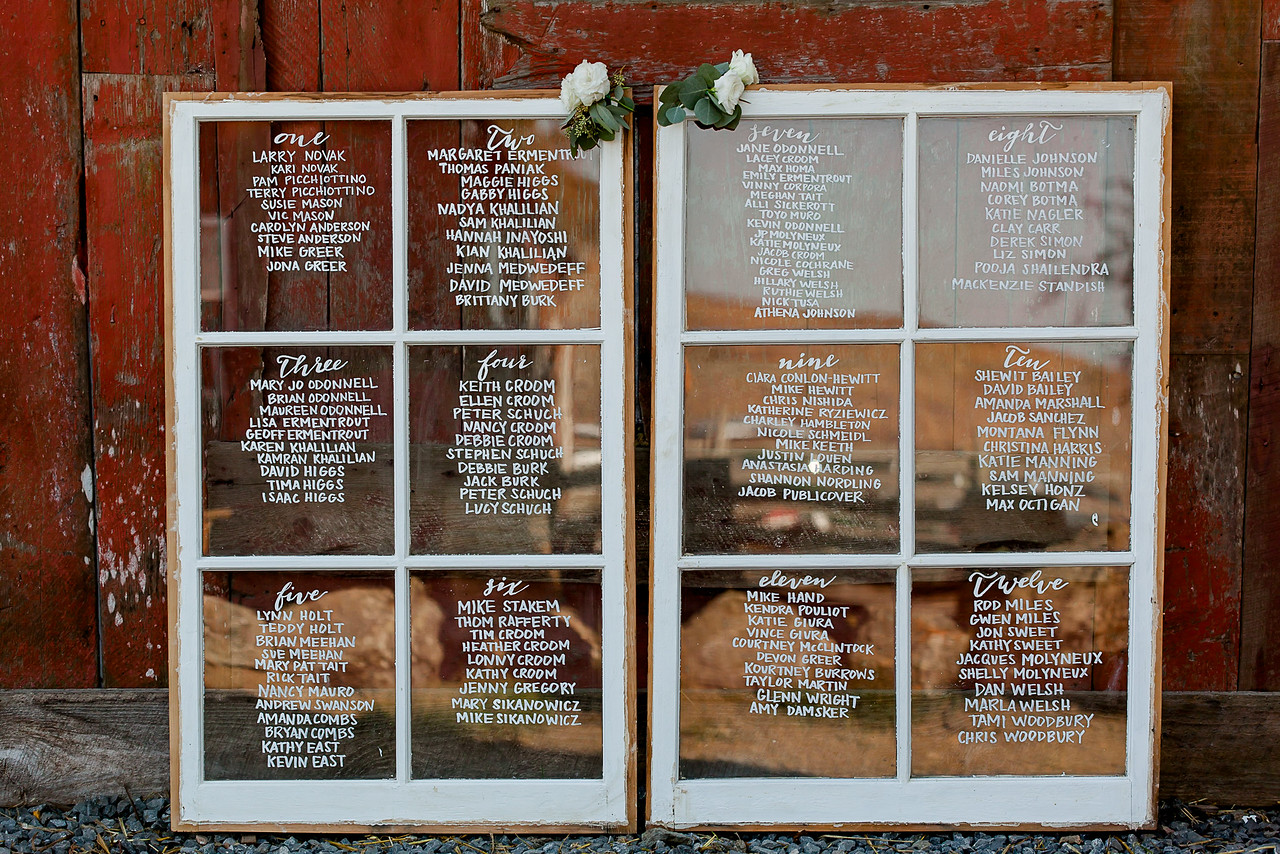 one
LARRY NOVAK
KARI NOVAK
PAM PICCHIOTTINO
TERRY PICCHIOTTINO
SUSIE MASON
VIC MASON
CAROLYN ANDERSON
STEVE ANDERSON
MIKE GREER
JONA GREER
Two
MARGARET ERMENTROUT
THOMAS PANIAK
MAGGIE HIGGS
GABBY HIGGS
NADYA KHALILIAN
SAM KHALILIAN
HANNAH INAYOSHI
KIAN KHALILIAN
JENNA MEDWEDEFF
DAVID MEDWEDEFF
BRITTANY BURK
Three
MARY JO ODONNELL
BRIAN ODONNELL
MAUREEN ODONNELL
LISA ERMENTROUT
GEOFF ERMENTROUT
KAREN KHALILIAN
KAMRAN KHALILIAN
DAVID HIGGS
TIMA HIGGS
ISAAC HIGGS
four
KEITH CROOM
ELLEN CROOM
PETER SCHUCH
NANCY CROOM
DEBBIE CROOM
STEPHEN SCHUCH
DEBBIE BURK
JACK BURK
PETER SCHUCH
LUCY SCHUCH
five
LYNN HOLT
TEDDY HOLT
BRIAN MEEHAN
SUE MEEHAN
MARY PAT TAIT
RICK TAIT
NANCY MAURO
ANDREW SWANSON
AMANDA COMBS
BRYAN COMBS
KATHY EAST
KEVIN EAST
six
MIKE STAKEM
THOM RAFFERTY
TIM CROOM
HEATHER CROOM
LONNY CROOM
KATHY CROOM
JENNY GREGORY
MARY SIKANOWICZ
MIKE SIKANOWICZ
seven
JANE ODONNELL
LACEY CROOM
MAX HOMA
EMILY ERMENTROUT
VINNY CORPORA
MEGHAN TAIT
ALLI SICKEROTT
TOYO MURO
KEVIN ODONNELL
JP MOLYNEUX
KATIE MOLYNEUX
JACOB CROOM
NICOLE COCHRANE
GREG WELSH
HILLARY WELSH
RUTHIE WELSH
NICK TUSA
ATHENA JOHNSON
eight
DANIELLE JOHNSON
MILES JOHNSON
NAOMI BOTMA
COREY BOTMA
KATIE NAGLER
CLAY CARR
DEREK SIMON
LIZ SIMON
POOJA SHAILENDRA
MACKENZIE STANDISH
nine
CIARA CONLON-HEWITT
MIKE HEWITT
CHRIS NISHIDA
KATHERINE RYZIEWICZ
CHARLEY HAMBLETON
NICOLE SCHMEIDL
MIKE KEETH
JUSTIN
ANASTASIA HARDING
SHANNON NORDLING
JACOB PUBLICOVER
Ten
SHEWIT BAILEY
DAVID BAILEY
AMANDA MARSHALL
JACOB SANCHEZ
MONTANA FLYNN
CHRISTINA HARRIS
KATIE MANNING
SAM MANNING
KELSEY HONZ
MAX OCTIGAN
eleven
MIKE HAND
KENDRA POULIOT
KATIE GIURA
VINCE GIURA
COURTNEY McCLINTOCK
DEVON GREER
KOURTNEY BURROWS
TAYLOR MARTIN
GLENN WRIGHT
AMY DAMSKER
Twelve
ROD MILES
GWEN MILES
JON SWEET
KATHY SWEET
JACQUES MOLYNEUX
SHELLY MOLYNEUX
DAN WELSH
MARLA WELSH
TAMI WOODBURY
CHRIS WOODBURY